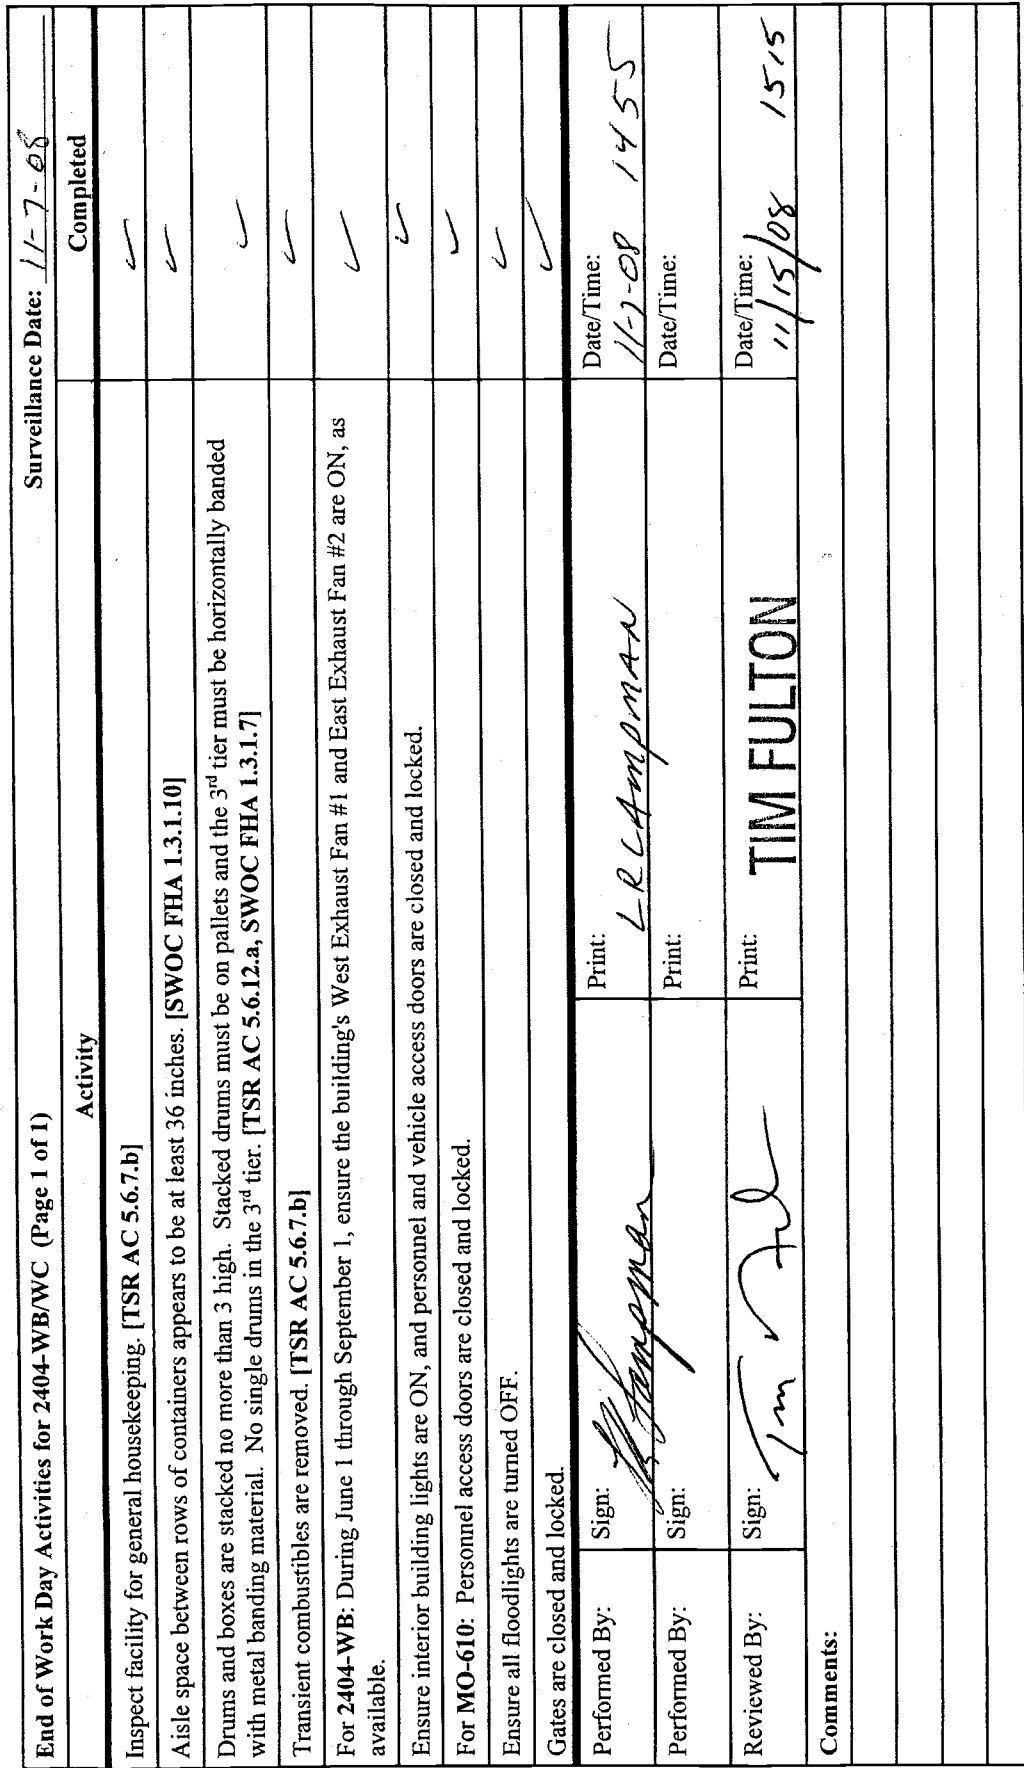 End of Work Day Activities for 2404-WB/WC (Page 1 of 1) Surveillance Date: 11-7-08
Activity Completed
Inspect facility for general housekeeping. [TSR AC 5.6.7.b] ✓
Aisle space between rows of containers appears to be at least 36 inches. [SWOC FHA 1.3.1.10] ✓
Drums and boxes are stacked no more than 3 high. Stacked drums must be on pallets and the 3rd tier must be horizontally banded
with metal banding material. No single drums in the 3rd tier. [TSR AC 5.6.12.a, SWOC FHA 1.3.1.7] ✓
Transient combustibles are removed. [TSR AC 5.6.7.b] ✓
For 2404-WB: During June 1 through September 1, ensure the building's West Exhaust Fan #1 and East Exhaust Fan #2 are ON, as
available. ✓
Ensure interior building lights are ON, and personnel and vehicle access doors are closed and locked. ✓
For MO-610: Personnel access doors are closed and locked. ✓
Ensure all floodlights are turned OFF. ✓
Gates are closed and locked. ✓
Performed By: Sign: Print: LR CAMPMAN Date/Time: 11-7-08 1455
Performed By: Sign: Print: Date/Time:
Reviewed By: Sign: Print: TIM FULTON Date/Time: 11/15/08 1515
Comments: